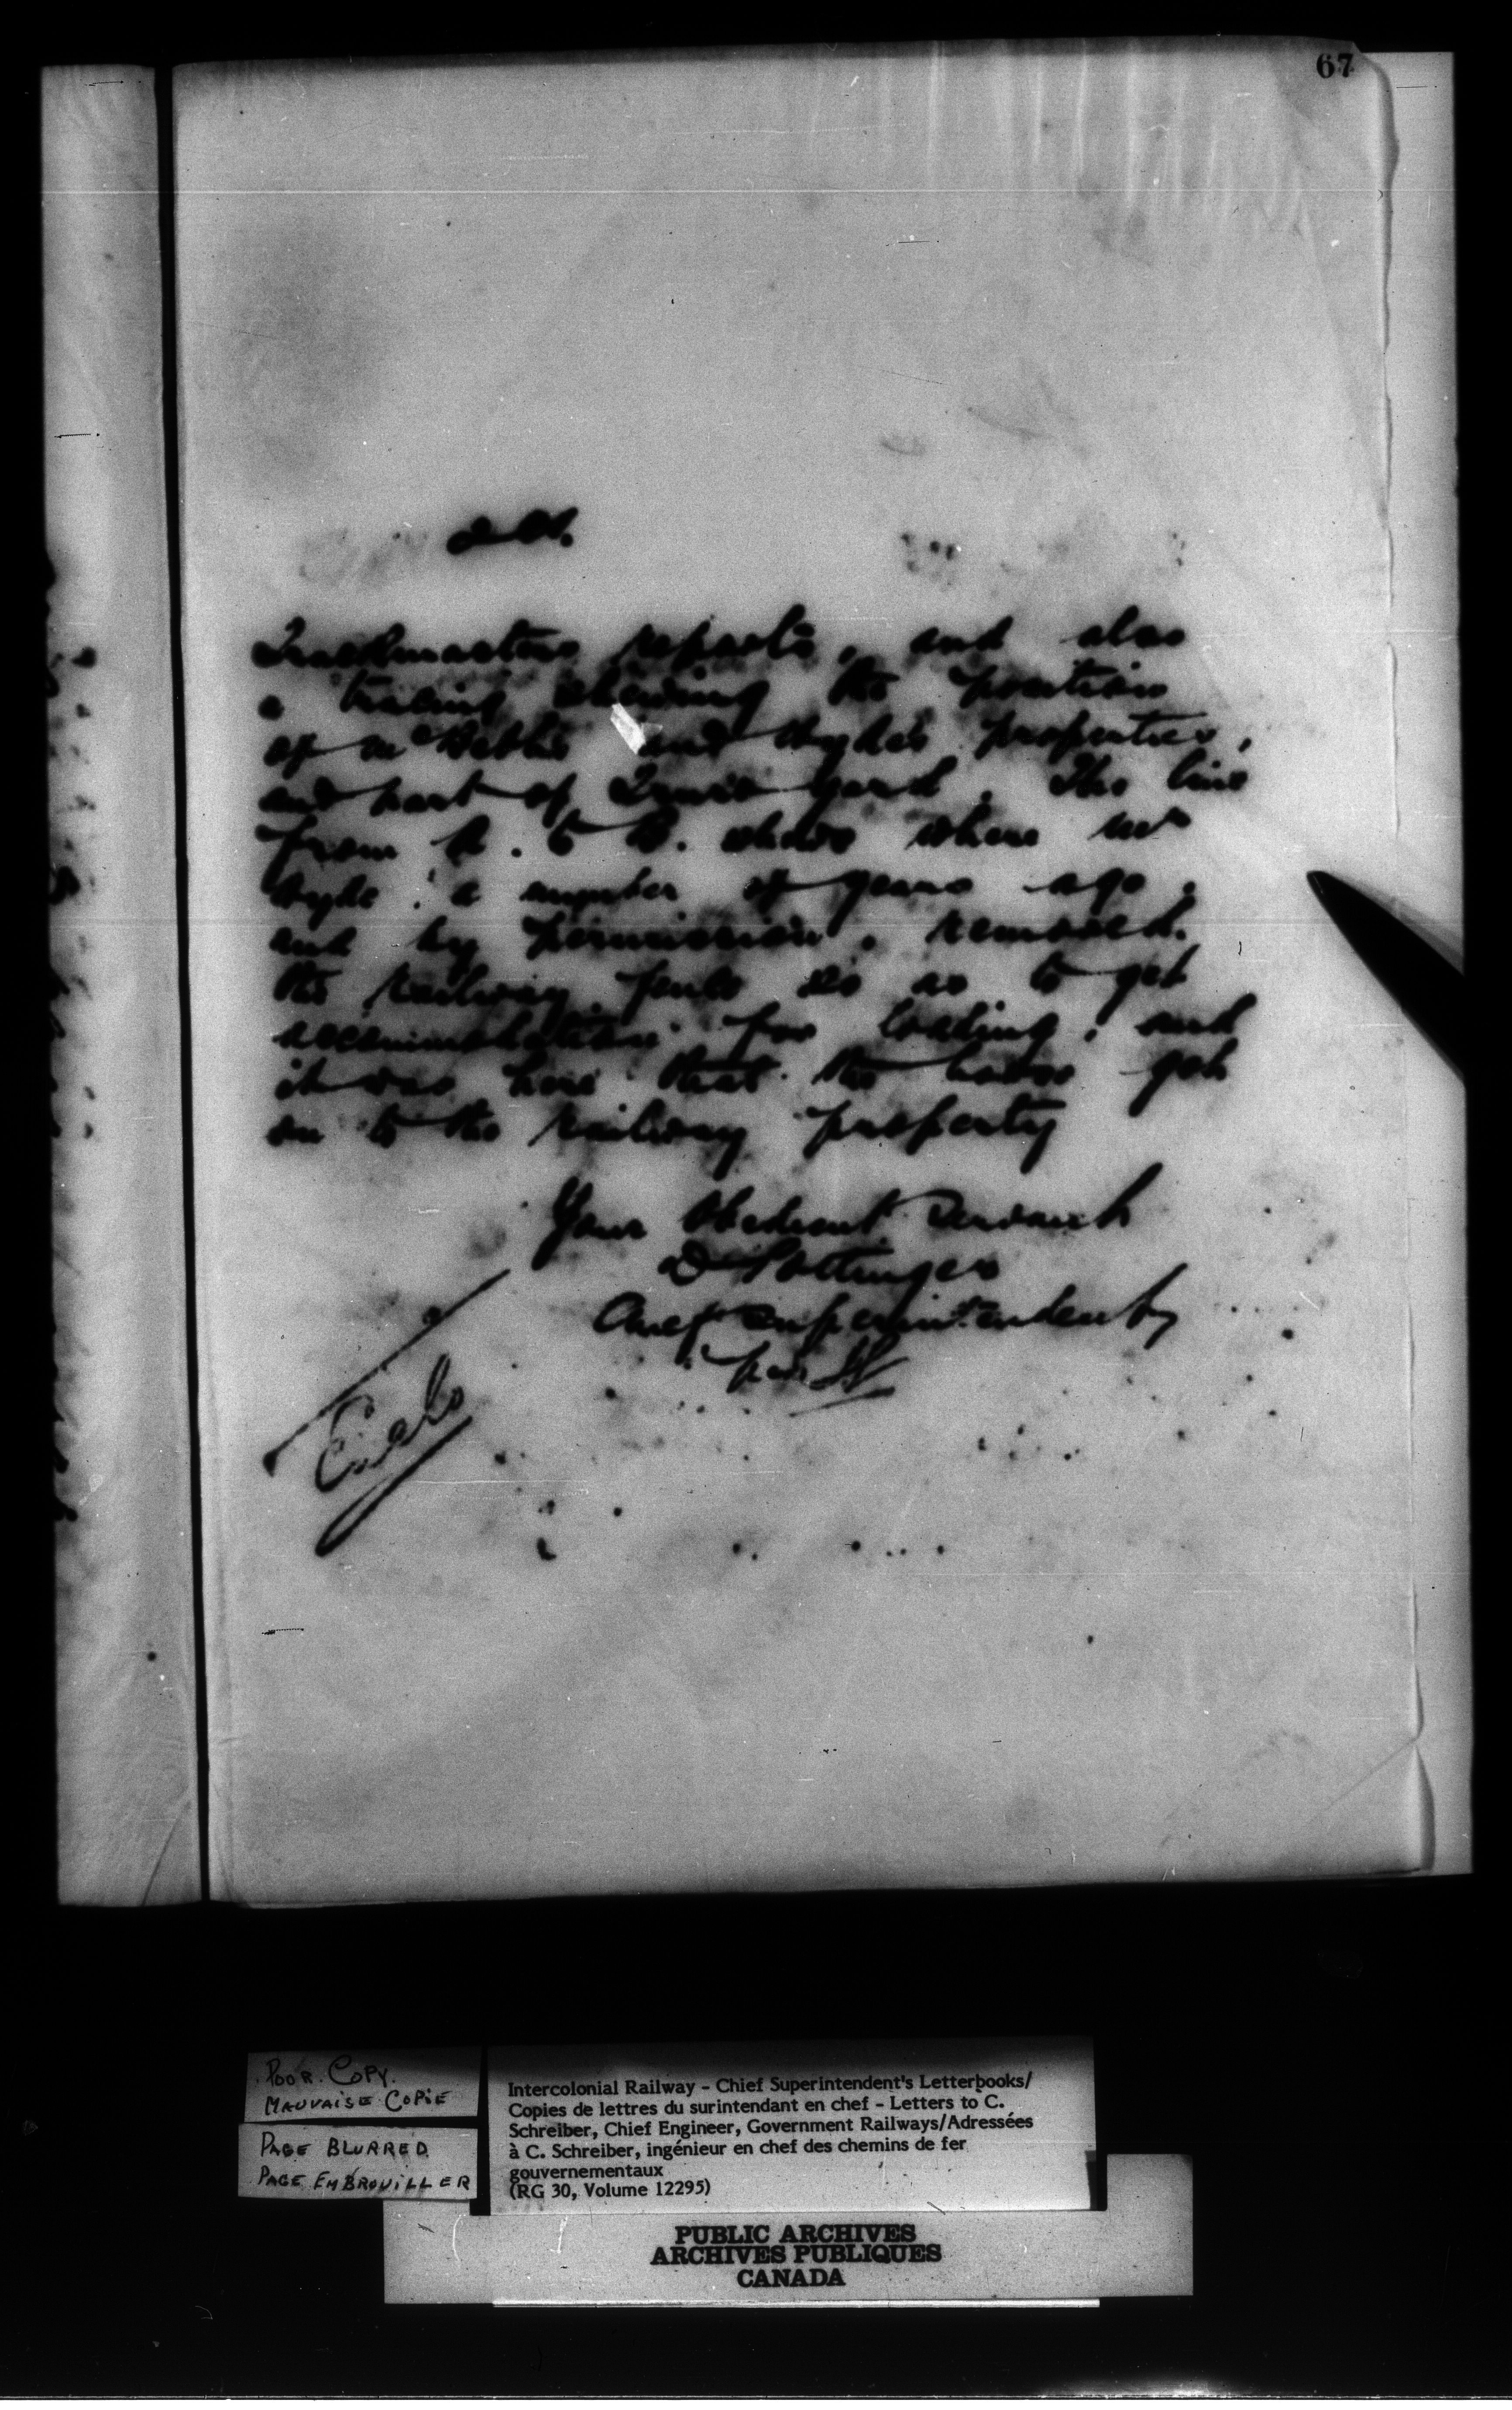 67
Trackmasters reports, and also
a tracing shewing the position
of Mr Webb's and Hyde's properties,
and part of Truro yard. The line
from A. to B. shews where Mr
Hyde, a number of years ago,
and by permission, removed
the railway fence so as to get
accommodation for loading, and
it was here that the horse got
on to the railway property
Your Obedient Servant
D Pottinger
Chief Superintendent
per
Enclo
POOR COPY.
MAUVAISE COPIE
PAGE BLURRED
PAGE EMBROUILLER
Intercolonial Railway – Chief Superintendent's Letterbooks/
Copies de lettres du surintendant en chef – Letters to C.
Schreiber, Chief Engineer, Government Railways/Adressées
à C. Schreiber, ingénieur en chef des chemins de fer
gouvernementaux
(RG 30, Volume 12295)
PUBLIC ARCHIVES
ARCHIVES PUBLIQUES
CANADA